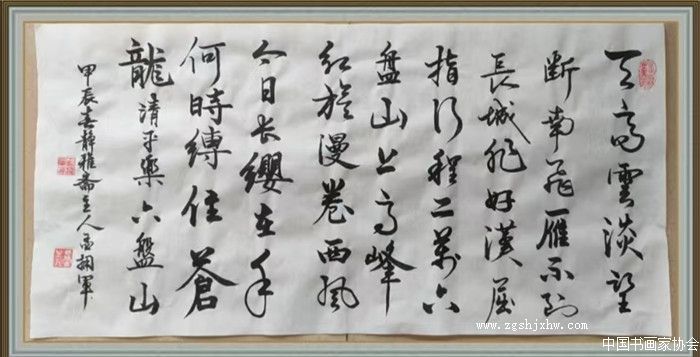 天高雲淡望
断南飛雁不到
長城非好漢屈
指行程二萬六
盘山上高峰
红旗漫卷西風
今日长缨在手
何時縛住蒼
龍清平樂六盤山
甲辰春静雅斋主人軍
www.zgshjxhw.com
中国书画家协会